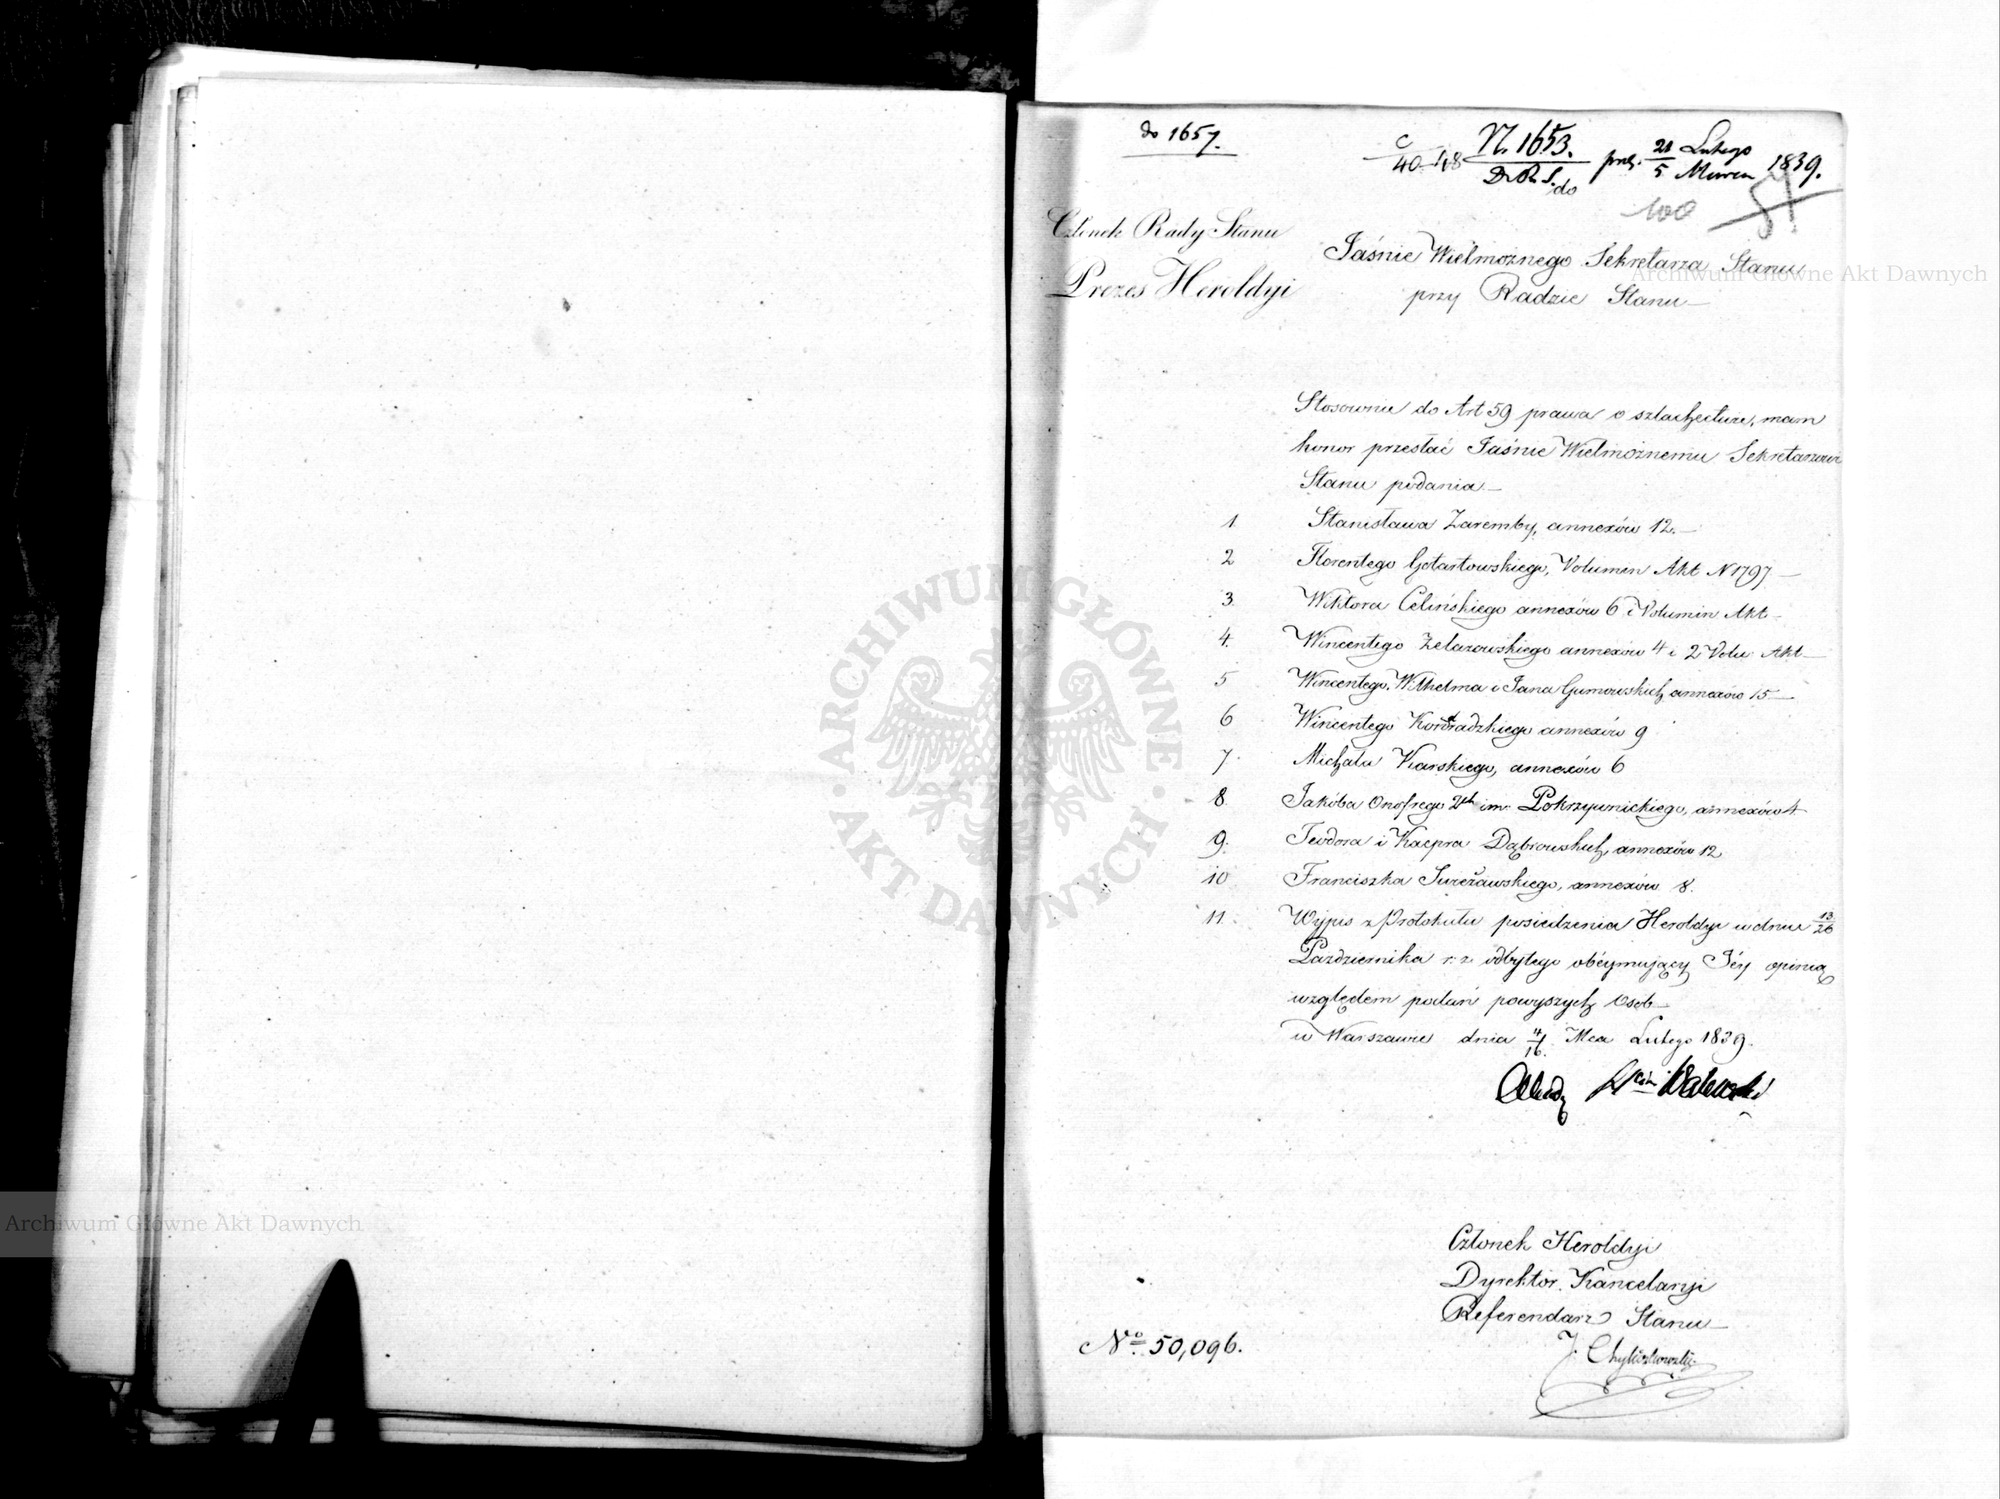 do 1657.
C
40 48
N. 1653.
D. R. S.
do
21 Lutego
5 Marca 1839.
100
57
Członek Rady Stanu
Prezes Heroldyi
Jaśnie Wielmożnego Sekretarza Stanu
przy Radzie Stanu
Stosownie do Art 59 prawa o szlachectwie, mam
honor przesłać Jaśnie Wielmożnemu Sekretarzowi
Stanu podania
1 Stanisława Zaremby, annexów 12.
2 Florentego Gotartowskiego, Volumen Akt N 1797
3. Wiktora Celińskiego annexów 6 i Volumin Akt
4. Wincentego Żelazowskiego annexów 4 i 2 Volu: Akt
5 Wincentego, Wilhelma i Jana Gumowskich annexów 15
6 Wincentego annexów 9
7 Michała Karskiego, annexów 6
8 Jakóba Onofrego 2ch im: Pokrzywnickiego, annexów 4
9. Teodora i Kacpra Dąbrowskich, annexów 12
10 Franciszka annexów 8.
11. Wypis z Protokułu posiedzenia Heroldyi w dniu 13/26
Października r. z. odbytego obeymujący Jéy opinią
względem podań powyższych Osob
w Warszawie dnia 4/16 Mca Lutego 1839.
Walewski
Członek Heroldyi
Dyrektor Kancelaryi
Referendarz Stanu
J.
No 50,096.
Archiwum Główne Akt Dawnych
Archiwum Główne Akt Dawnych
ARCHIWUM GŁÓWNE · AKT DAWNYCH ·